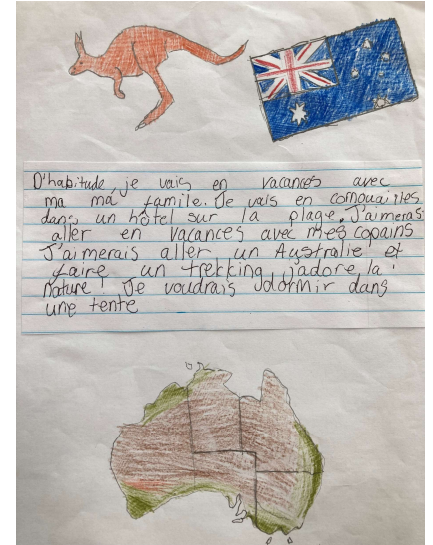 D'habitude, je vais en vacances avec
ma ma famile. Je vais en cornouailles
dans un hôtel sur la plage. J'aimeras
aller en vacances avec mes copains
J'aimerais aller un Australie et
faire un trekking j'adore la
nature! Je voudrais dormir dans
une tente